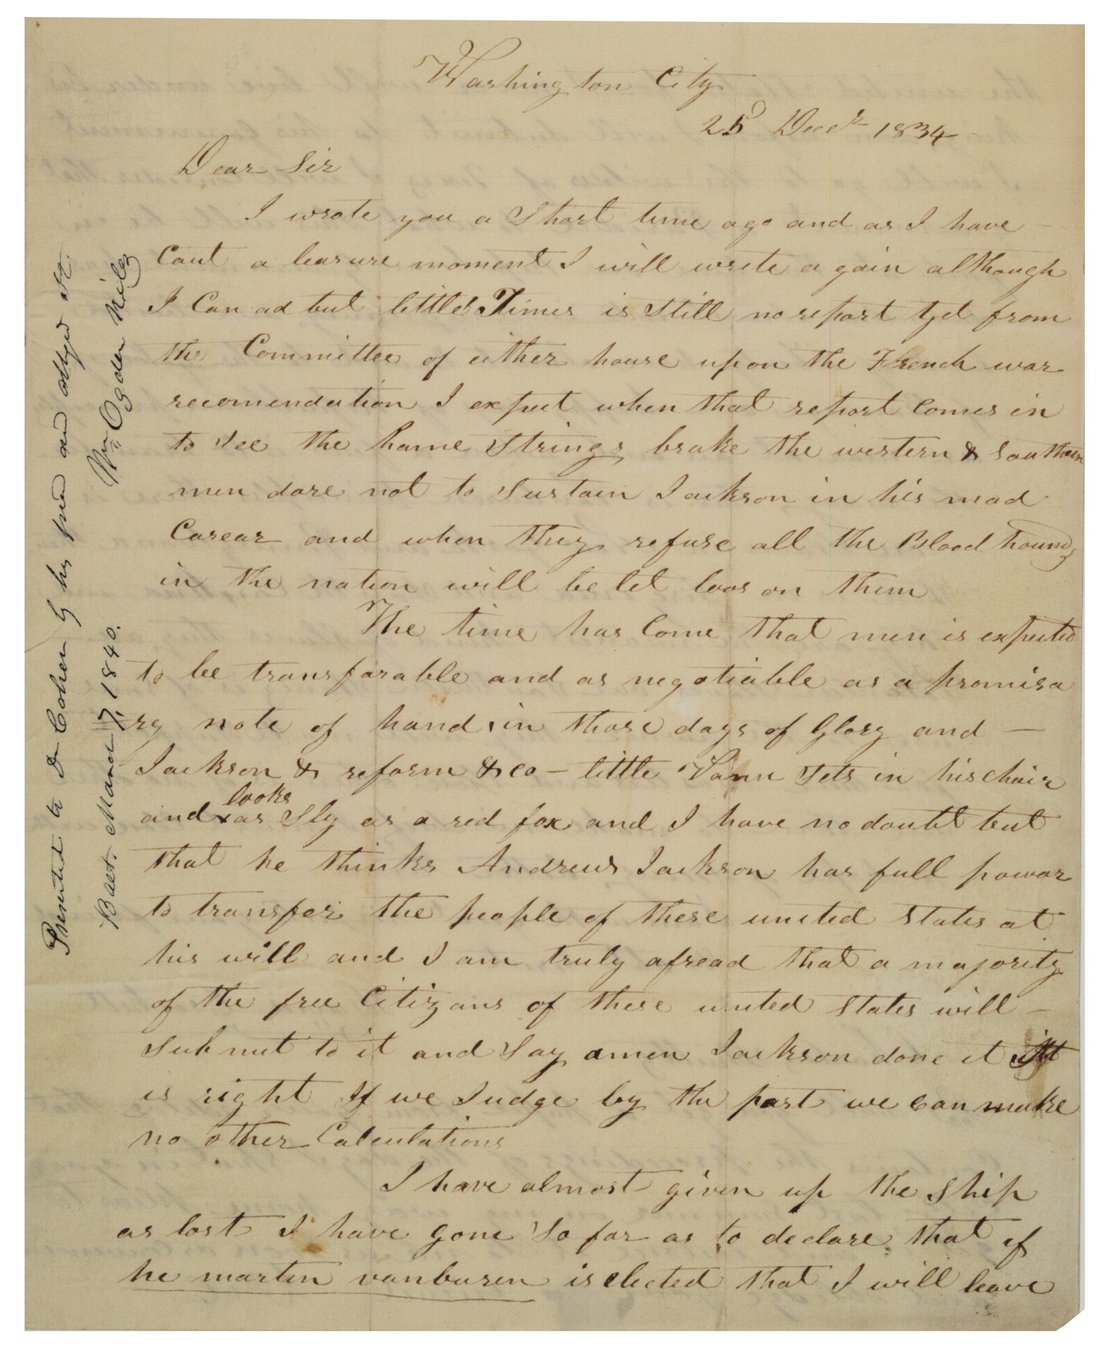 Washington City
25 Decr 1834
Dear Sir
I wrote you a Short time ago and as I have –
Caut a leasure moment I will write a gain although
I Can ad but little Times is Still no report yet from
the Committee of either house upon the French war
recomendation I expect when that report Comes in
to See the hame Strings brake the western & Southern
men dare not to Sustain Jackson in his mad
Carear and when they refuse all the Blood hounds
in the nation will be let loos on them
The time has Come that men is expected
to be transfarable and as negotiable as a promisa
ry note of hand in those days of Glory and –
Jackson & reform & co – little Vann Sets in his chair
and looks as Sly as a red fox and I have no doubt but
that he thinks Andrew Jackson has full power
to transfer the people of these united States at
his will and I am truly afread that a majority
of the free Citizans of these united States will –
Submit to it and Say amen Jackson done it it
is right If we Judge by the past we can make
no other Calculations
I have almost given up the Ship
as lost I have gone So far as to declare that if
he martin vanburen is elected that I will leave
Presented to D Cohen by his friend and obliged St.
Wm Ogden Niles
Balt. March 7, 1840.